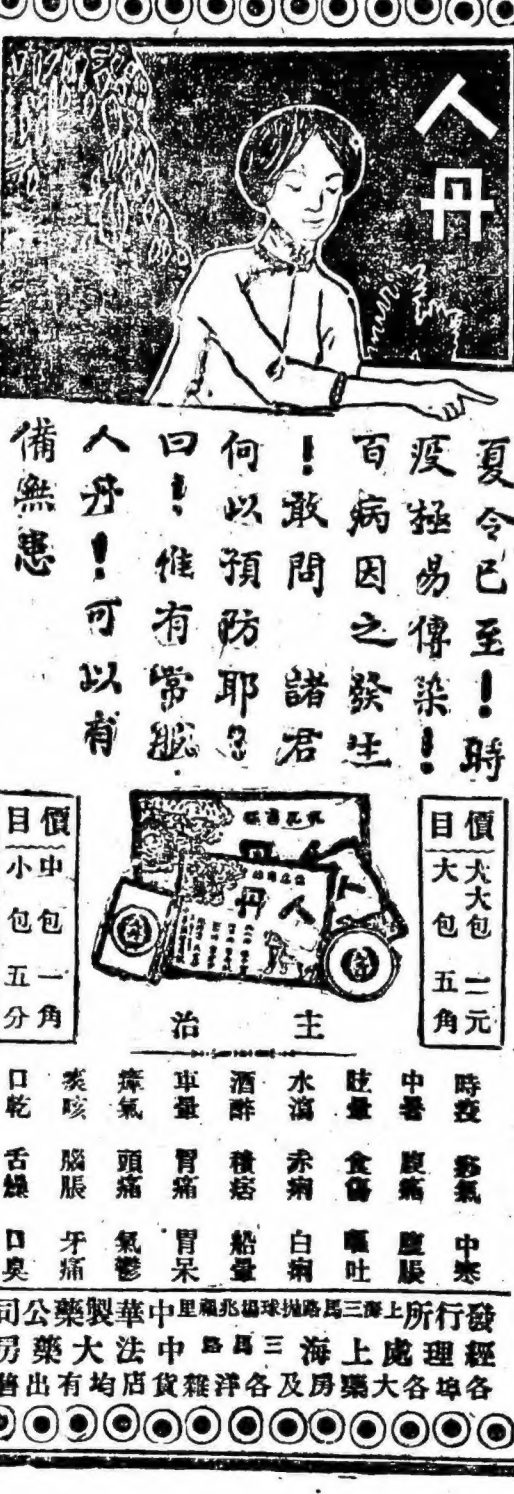 人丹
夏令已至！時
疫極易傳染！
百病因之發生
！敢問　諸君
何以預防耶？
曰！惟有常服
人丹！可以有
備無患
價目
大大包　一二元
大包　五角
人丹
價目
中包　一角
小包　五分
主治
時疫　痧氣　中寒
中暑　腹痛　腹脹
眩暈　食傷　嘔吐
水瀉　赤痢　白痢
酒醉　積痞　船暈
車暈　胃痛　胃呆
瘴氣　頭痛　氣鬱
痰咳　腦脹　牙痛
口乾　舌燥　口臭
發行所上海三馬路拋球場兆福里中華製藥公司
經理處上海三馬路中法大藥房
各埠各大藥房及各洋雜貨店均有出售